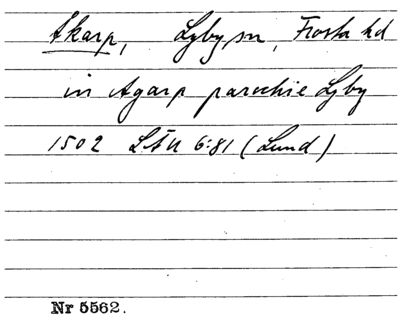 Åkarp, Lyby sn, Frosta hd
in Agarp parochie Lyby
1502 LÄU 6:81 (Lund)
Nr 5562.